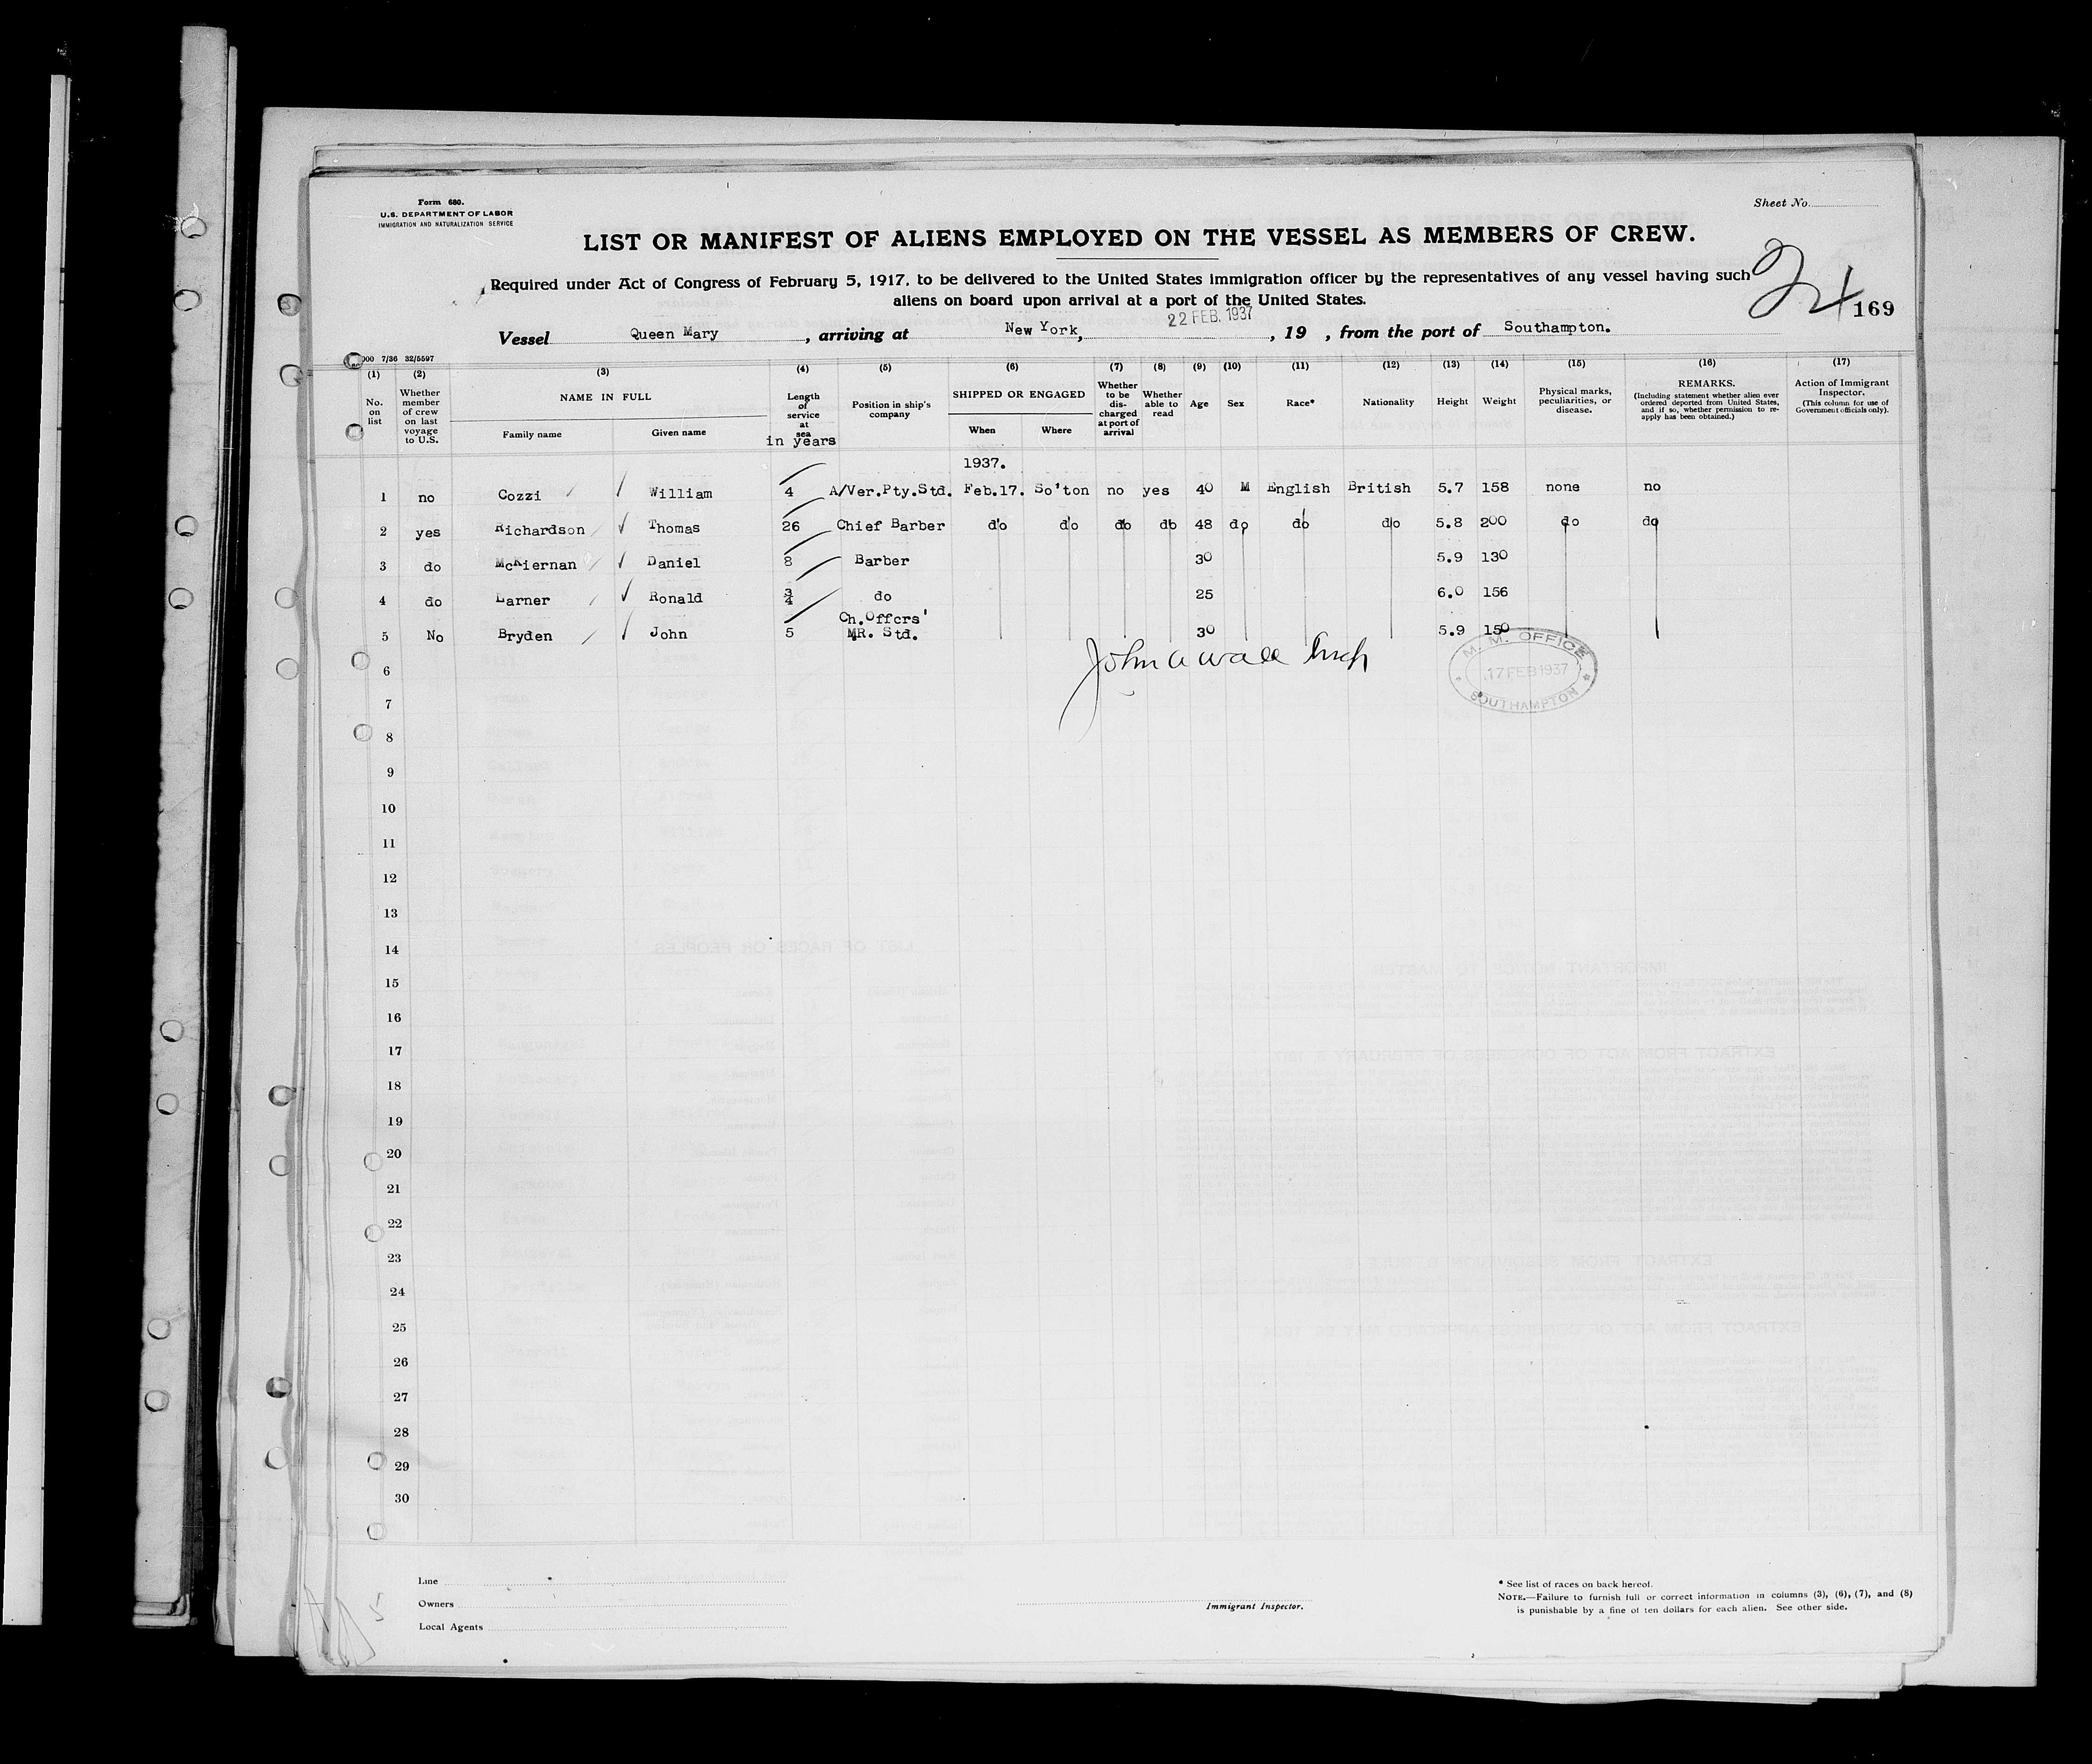 Form 680.
U.S. DEPARTMENT OF LABOR
IMMIGRATION AND NATURALIZATION SERVICE
Sheet No.
LIST OR MANIFEST OF ALIENS EMPLOYED ON THE VESSEL AS MEMBERS OF CREW.
Required under Act of Congress of February 5, 1917, to be delivered to the United States immigration officer by the representatives of any vessel having such
aliens on board upon arrival at a port of the United States.
169
22 FEB. 1937
Vessel Queen Mary, arriving at New York, , 19 , from the port of Southampton.
000 7/36 32/5597
(1) (2) (3) (4) (5) (6) (7) (8) (9) (10) (11) (12) (13) (14) (15) (16) (17)
No. on list
Whether member of crew on last voyage to U.S.
NAME IN FULL
Family name
Given name
Length of service at sea
in years
Position in ship's company
SHIPPED OR ENGAGED
When
Where
Whether to be discharged at port of arrival
Whether able to read
Age
Sex
Race*
Nationality
Height
Weight
Physical marks, peculiarities, or disease.
REMARKS.
(Including statement whether alien ever ordered deported from United States, and if so, whether permission to reapply has been obtained.)
Action of Immigrant Inspector.
(This column for use of Government officials only).
1937.
1 no Cozzi William 4 A/Ver.Pty.Std. Feb.17. So'ton no yes 40 M English British 5.7 158 none no
2 yes Richardson Thomas 26 Chief Barber do do do do 48 do do do 5.8 200 do do
3 do McKiernan Daniel 8 Barber 30 5.9 130
4 do Larner Ronald 3/4 do 25 6.0 156
Ch.Offcrs'
5 No Bryden John 5 MR. Std. 30 5.9 150
6
M. M. OFFICE
17 FEB 1937
SOUTHAMPTON
7
8
9
10
11
12
13
14
15
16
17
18
19
20
21
22
23
24
25
26
27
28
29
30
Line
Owners
Local Agents
Immigrant Inspector.
* See list of races on back hereof.
NOTE.—Failure to furnish full or correct information in columns (3), (6), (7), and (8)
is punishable by a fine of ten dollars for each alien. See other side.
5